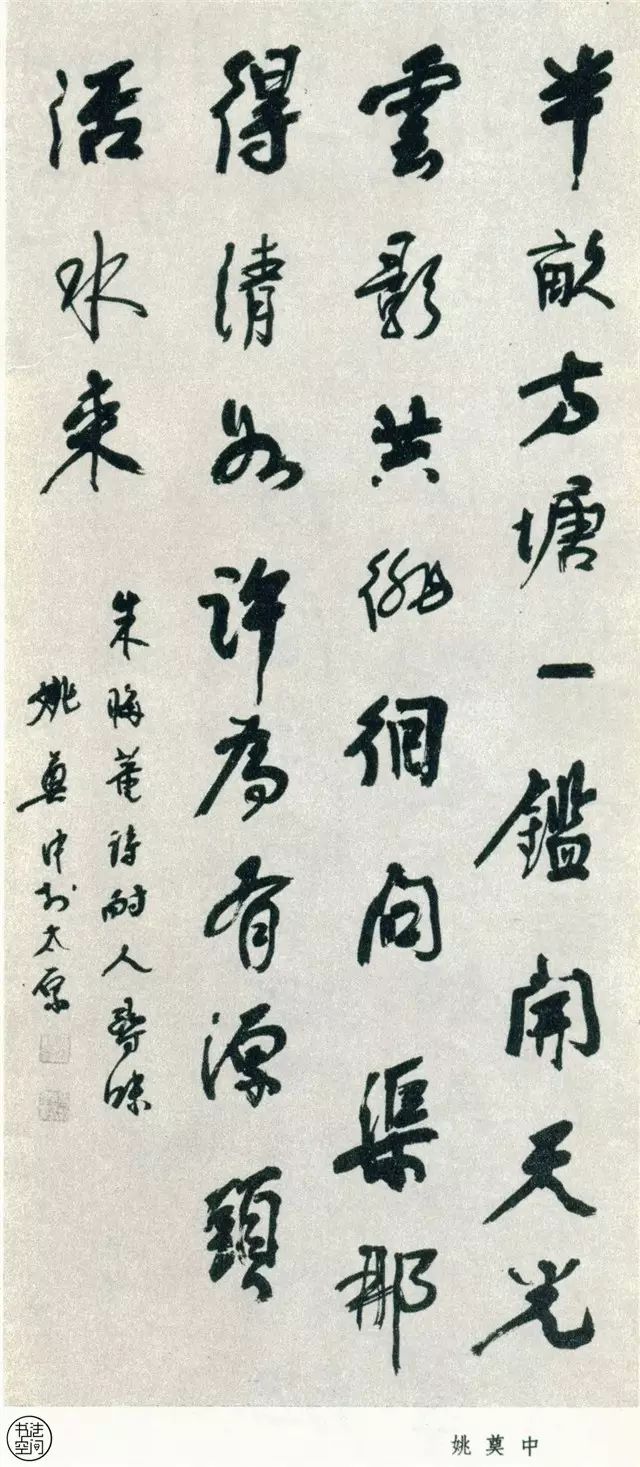 半畝方塘一鑑開天光
雲影共徘徊問渠那
得清如許為有源頭
活水來
朱晦菴詩耐人尋味
姚奠中於太原
中奠姚
书法空间